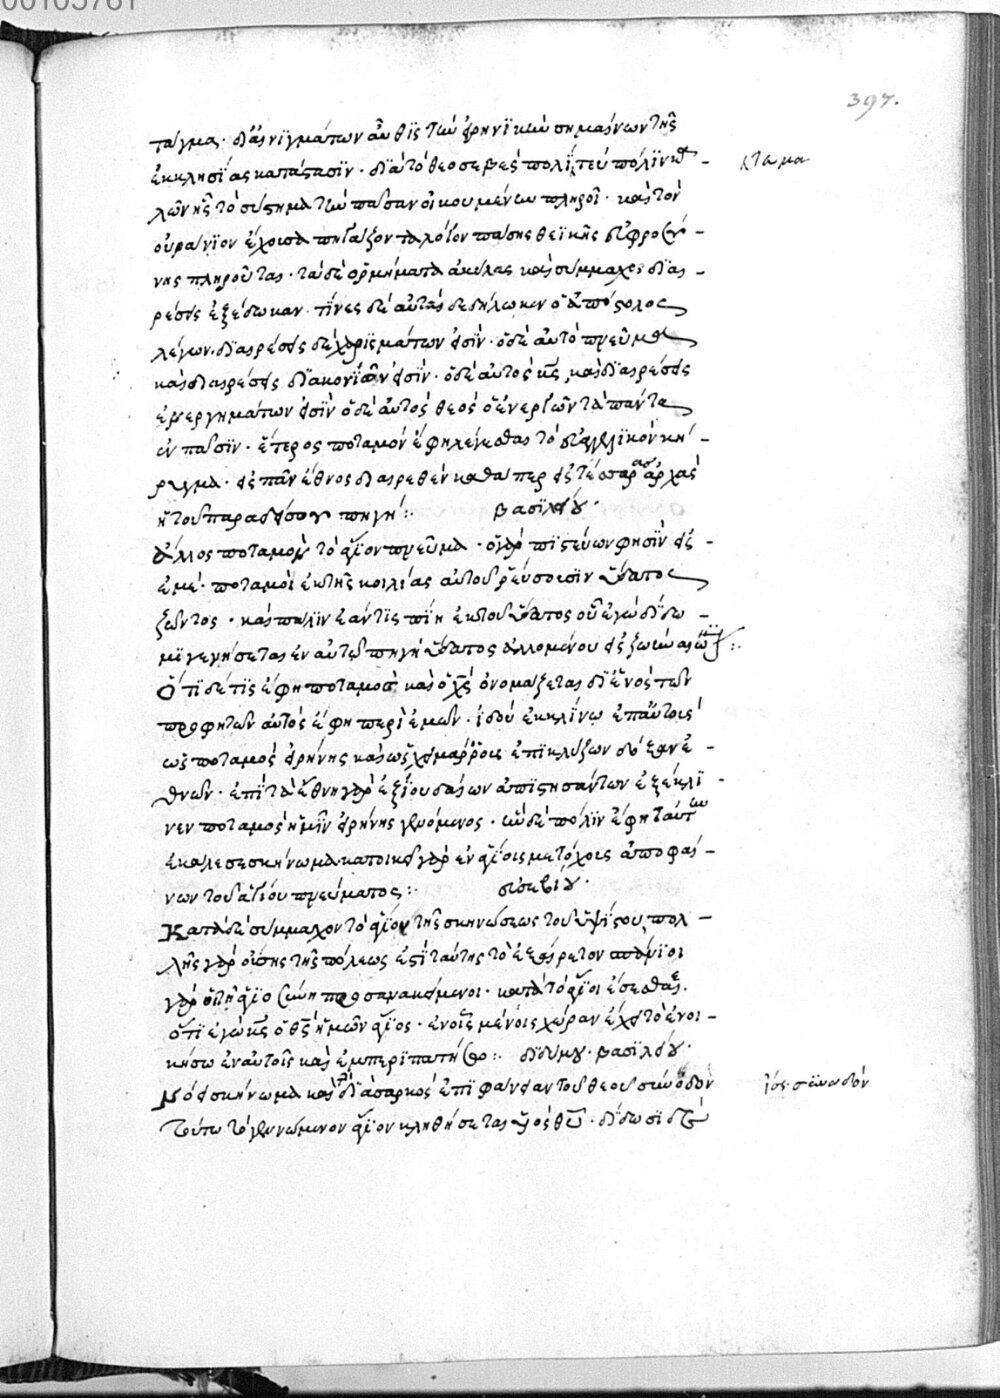 00105781
397.
ταγμα. δι' αἰνιγμάτων αὖθις τὴν εἰρηνικὴν σημαίνων τῆς
ἐκκλησίας κατάστασιν. διὰ τὸ θεοσεβὲς πολίτευ πόλιν κα -
κτωμα
λῶν ἧς τὸ σύστημα τὴν πᾶσαν οἰκουμένην πληροῖ. καὶ τὸν
οὐράνιον ἔχουσα τὸν λόγον πάσης θεϊκῆς εὐφροσύ -
νης πληροῦται. τὰ δὲ ὁρμήματα ἀκύλας καὶ σύμμαχος διαι -
ρέσεις ἐξέδωκαν. τίνες δὲ αὗται δεδήλωκεν ὁ ἀπόστολος
λέγων. διαιρέσεις δὲ χαρισμάτων εἰσίν. ὁ δὲ αὐτὸ πνεῦμα
καὶ διαιρέσεις διακονιῶν εἰσίν. ὁ δὲ αὐτὸς κς, καὶ διαιρέσεις
ἐνεργημάτων εἰσὶν ὁ δὲ αὐτὸς θεὸς ὁ ἐνεργῶν τὰ πάντα
ἐν πᾶσιν. ἕτερος ποταμὸν ἔφη λέγεσθαι τὸ εὐαγγελικὸν κή -
ρυγμα. εἰς πᾶν ἔθνος διαιρεθὲν καθάπερ εἰς τέσσαρας ἀρχὰς
ἡ τοῦ παραδείσου πηγή :. βασιλείου.
ἄλλος ποταμὸν τὸ ἅγιον πνεῦμα. ὁ γὰρ πιστεύων φησὶν εἰς -
ἐμέ. ποταμοὶ ἐκ τῆς κοιλίας αὐτοῦ ῥεύσουσιν ὕδατος
ζῶντος. καὶ πάλιν ἐάν τις πίῃ ἐκ τοῦ ὕδατος οὗ ἐγὼ δίδω -
μι γενήσεται ἐν αὐτῷ πηγὴ ὕδατος ἁλλομένου εἰς ζωὴν αἰώνιον :.
Ὅτι δέ τις ἔφη ποταμὸς καὶ ὁ χς ὀνομάζεται δι' ἑνὸς τῶν
προφητῶν αὐτὸς ἔφη περὶ ἐμῶν. ἰδού ἐκκλίνω ἐπ' αὐτοὺς
ὡς ποταμὸς εἰρήνης καὶ ὡς χειμάρρους ἐπικλύζων δόξαν ἐ -
θνῶν. ἐπὶ τὰ ἔθνη γὰρ ἐξ ἰουδαίων ἀπιστησάντων ἐξέκλι -
νεν ποταμὸς ἡμῖν εἰρήνης γενόμενος. ἣν δὲ πόλιν ἔφη ταύτην
ἐκάλεσε σκήνωμα κατοικεῖ γὰρ ἐν ἁγίοις μετόχους ἀποφαί -
νων τοῦ ἁγίου πνεύματος :. εὐσεβίου.
Κατὰ δὲ σύμμαχον τὸ ἅγιον τῆς σκηνώσεως τοῦ ὑψίστου, πολ -
λῆς γὰρ οὔσης τῆς πόλεως ἐστὶ ταύτης τὸ ἐξαίρετον
γὰρ ὅτι ἁγίῳ ζώῃ προσανακείμενοι. κατὰ τὸ ἅγιοι ἔσεσθαι.
ὅτι ἐγὼ κς ὁ θς ἡμῶν ἅγιος. ἐν οἷς μένοις χώραν ἔχει τὸ ἐνοι -
κήσω ἐν αὐτοῖς καὶ ἐμπεριπατήσω :. διδύμου. βασιλείου.
Νόει σκήνωμα καὶ τὴν διὰ σαρκὸς ἐπιφάνειαν τοῦ θεοῦ
τούτῳ τὸ γεννώμενον ἅγιον κληθήσεται υἱὸς θῦ. δίδωσι δὲ